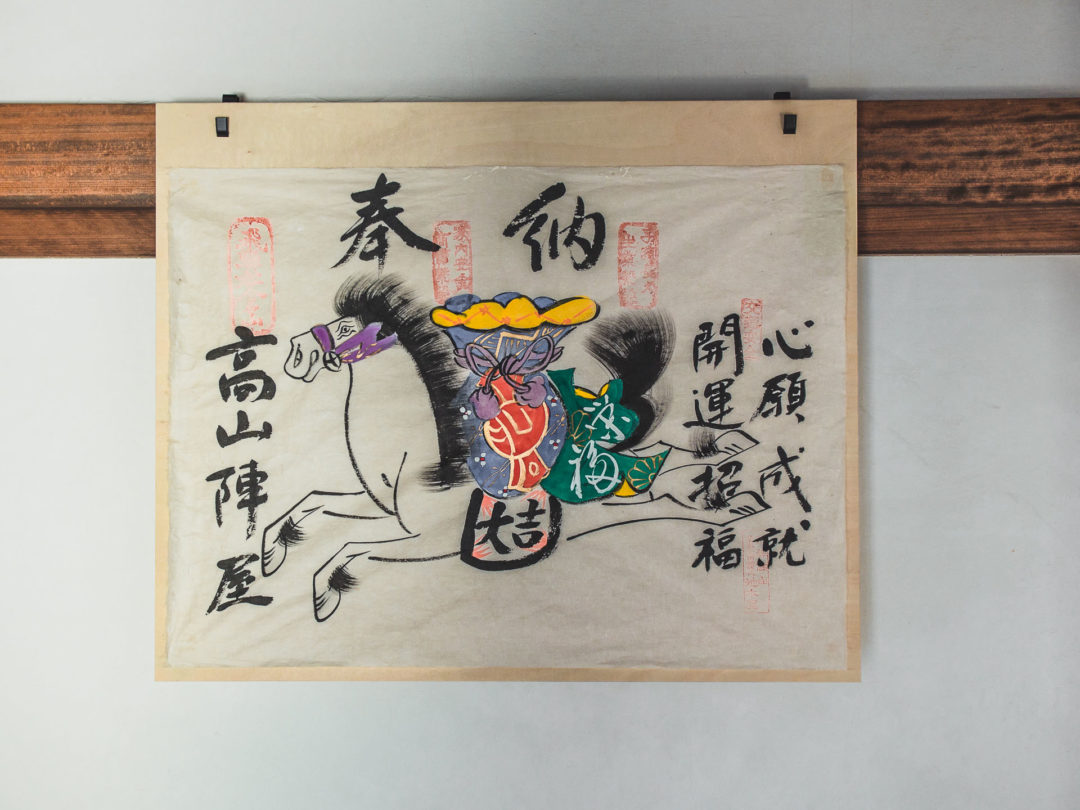 奉納
心願成就
開運招福
栄福
大吉
高山陣屋